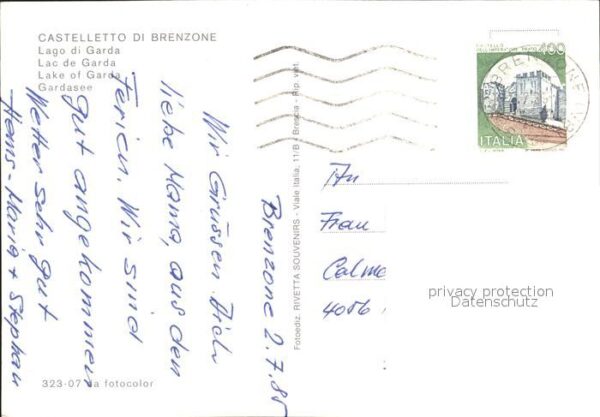 CASTELLETTO DI BRENZONE
Lago di Garda
Lac de Garda
Lake of Garda
Gardasee
Brenzone 2.7.85
Wir Grüssen Dich
liebe Mama, aus den
Ferien. Wir sind
gut angekommen
Wetter sehr gut
Hans-Maria + Stephan
323-07 fotocolor
Fotoediz. RIVETTA SOUVENIRS - Viale Italia, 11/B - Brescia - Rip. viet.
400
ITALIA
BRENZONE
An
Frau
4056
privacy protection
Datenschutz